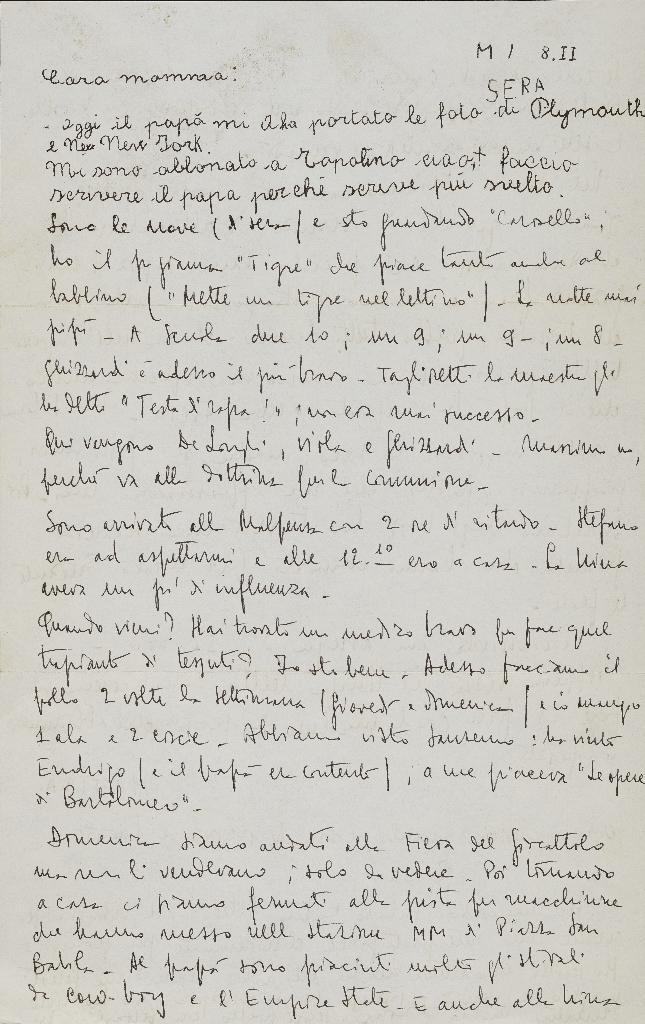 MI 8.II
SERA
Cara mamma:
- Oggi il papà mi dha portato le foto di Plymouth
e New New York.
Mi sono abbonato a Topolino ciao, faccio
scrivere il papa perché scrive più svelto.
Sono le nove (di sera) e sto guardando "Carosello";
ho il pigiama "Tigre" che piace tanto anche al
babbino ("Mette un tigre nel lettino"). La notte mai
pipì - A scuola due 10; un 9; un 9-; un 8-
Ghizzardi è adesso il più bravo. Taglietti la maestra gli
ha detto "Testa di rapa!"; non era mai successo.
Qui vengono De Longhi, Viola e Ghizzardi - Massimo no,
perché va alla dottrina per la Comunione.
Sono arrivato alla Malpensa con 2 ore di ritardo. Stefano
era ad aspettarmi e alle 12.10 ero a casa. La Nina
aveva un po' di influenza.
Quando vieni? Hai trovato un medico bravo per fare quel
trapianto di tessuti? Io sto bene. Adesso facciamo il
pollo 2 volte la settimana (Giovedì e domenica) e io mangio
1 ala e 2 coscie. Abbiamo visto Sanremo: ha vinto
Endrigo (e il papà era contento); a me piaceva "Le opere
di Bartolomeo".
Domenica siamo andati alla Fiera del Giocattolo
ma non li vendevano; solo da vedere. Poi tornando
a casa ci siamo fermati alla pista per macchinine
che hanno messo nella stazione MM di Piazza San
Babila. Al papà sono piaciuti molto gli stivali
da cow-boy e l'Empire State. E anche alla Nina